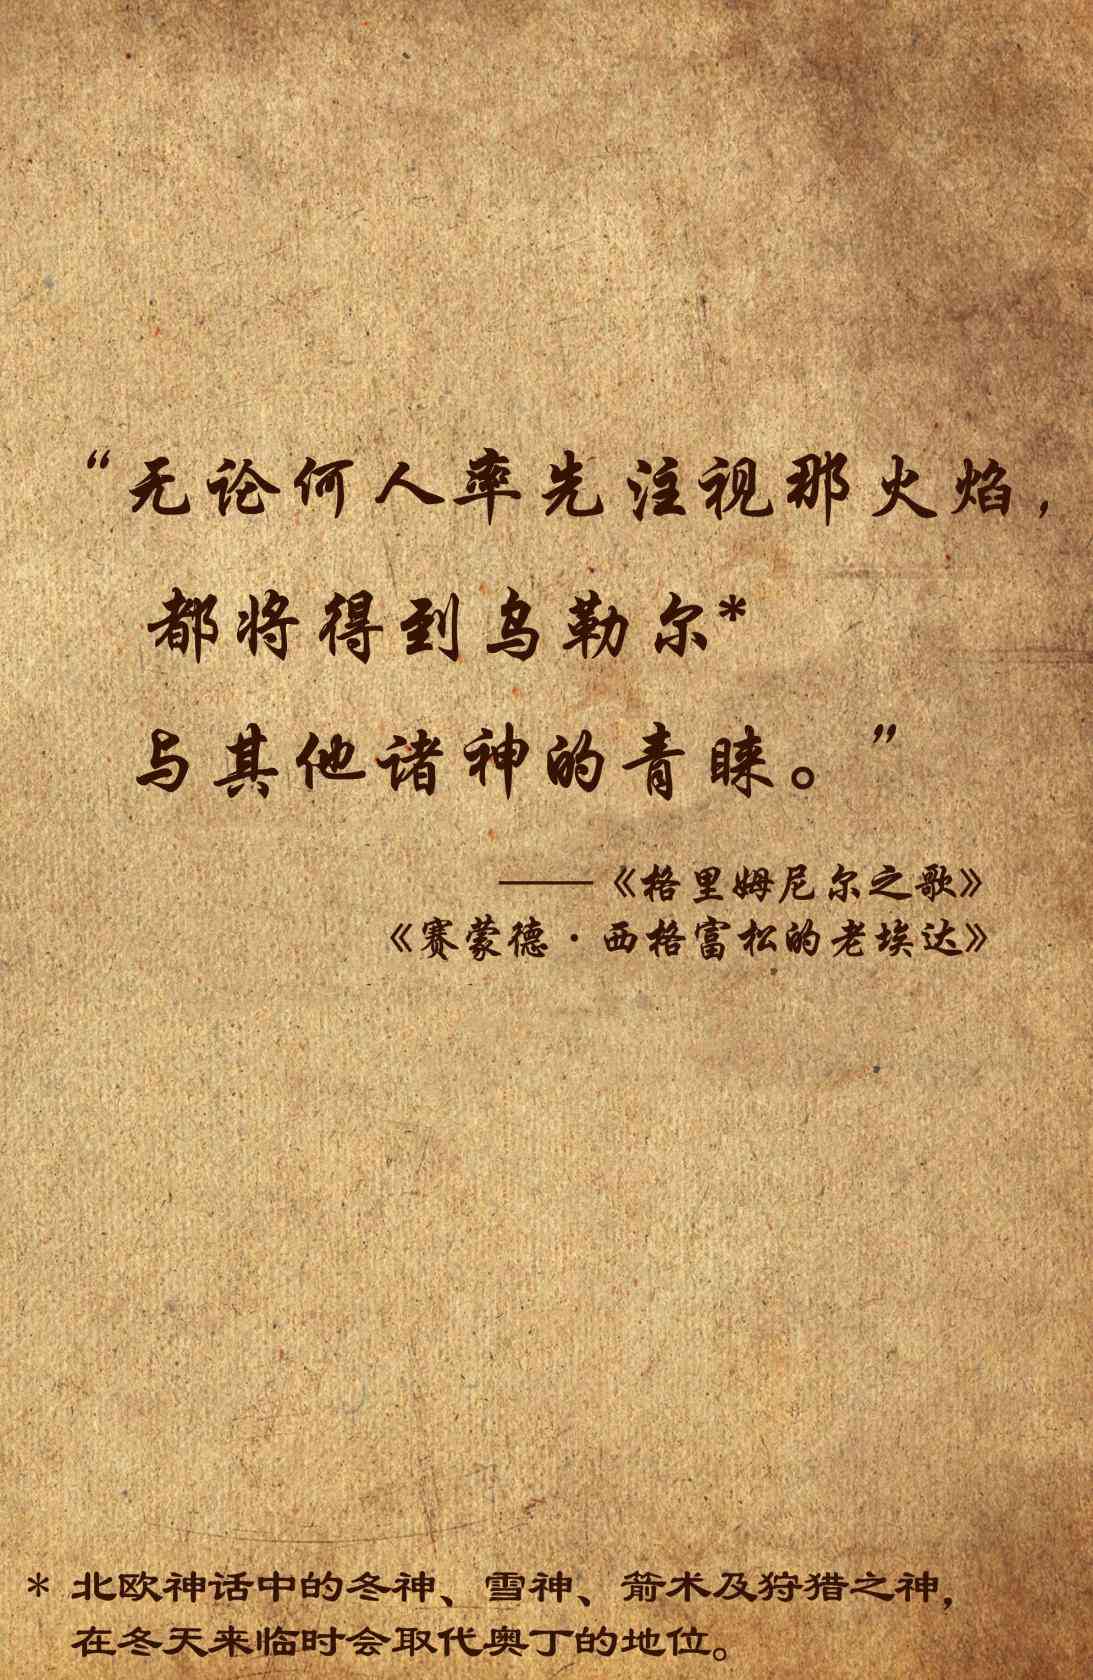 “无论何人率先注视那火焰，
都将得到乌勒尔*
与其他诸神的青睐。”
——《格里姆尼尔之歌》
《赛蒙德·西格富松的老埃达》
* 北欧神话中的冬神、雪神、箭术及狩猎之神，
在冬天来临时会取代奥丁的地位。